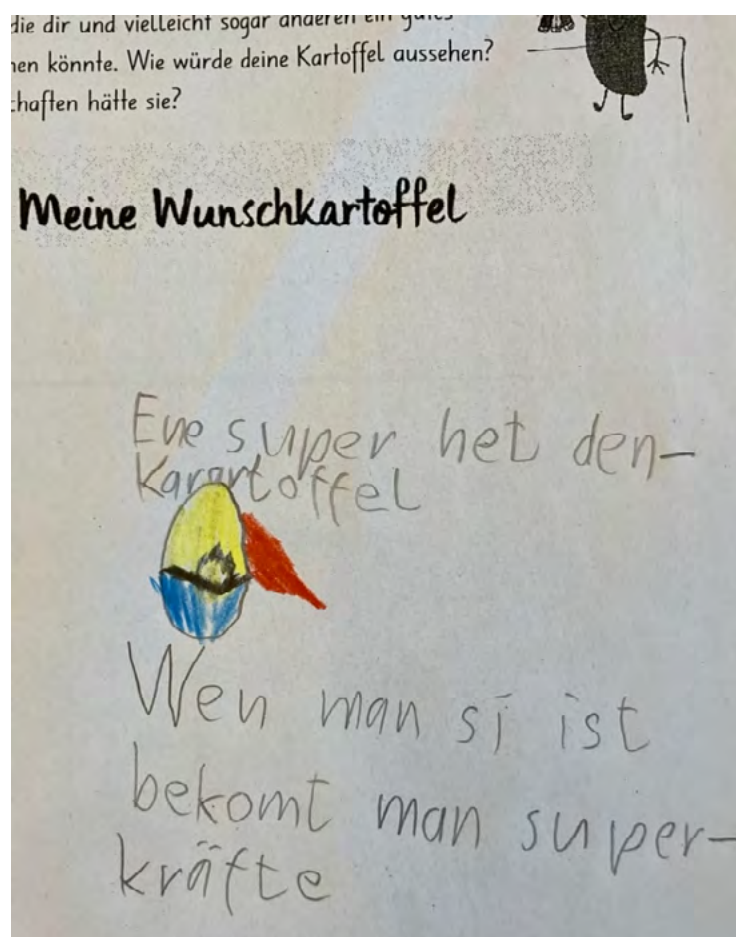 die dir und vielleicht sogar anderen ein gutes
nen könnte. Wie würde deine Kartoffel aussehen?
chaften hätte sie?
Meine Wunschkartoffel
Eine super het den-
Karartoffel
Wen man si ist
bekomt man super-
kräfte